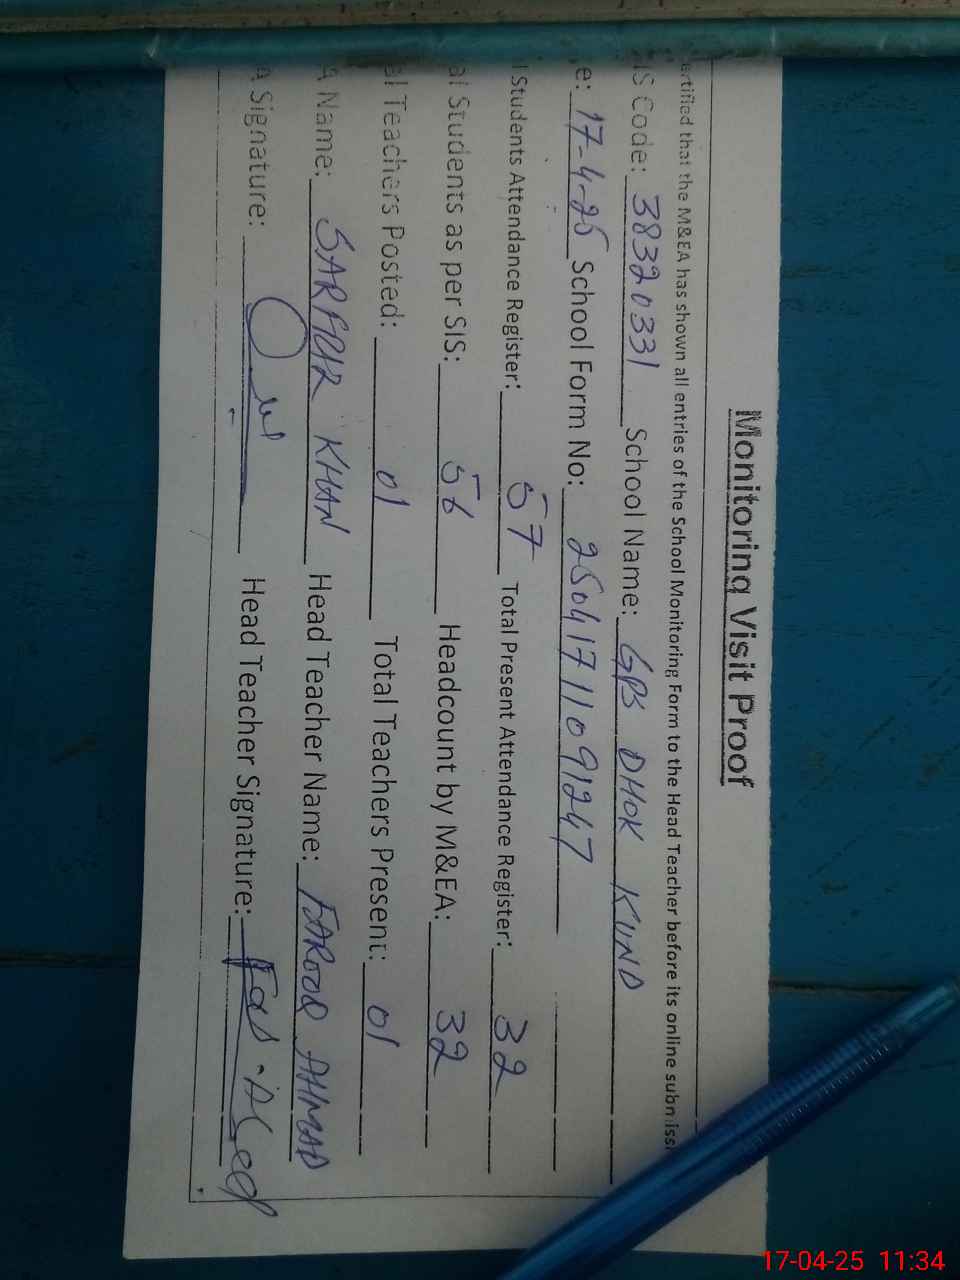 Monitoring Visit Proof
ertified that the M&EA has shown all entries of the School Monitoring Form to the Head Teacher before its online subnissi
IS Code: 38320331 School Name: GPS DHOK KUND
e: 17-4-25 School Form No: 25041711091247
l Students Attendance Register: 57 Total Present Attendance Register: 32
al Students as per SIS: 56 Headcount by M&EA: 32
al Teachers Posted: 01 Total Teachers Present: 01
A Name: SARFRAZ KHAN Head Teacher Name: FAROOQ AHMAD
A Signature: Head Teacher Signature:
17-04-25 11:34